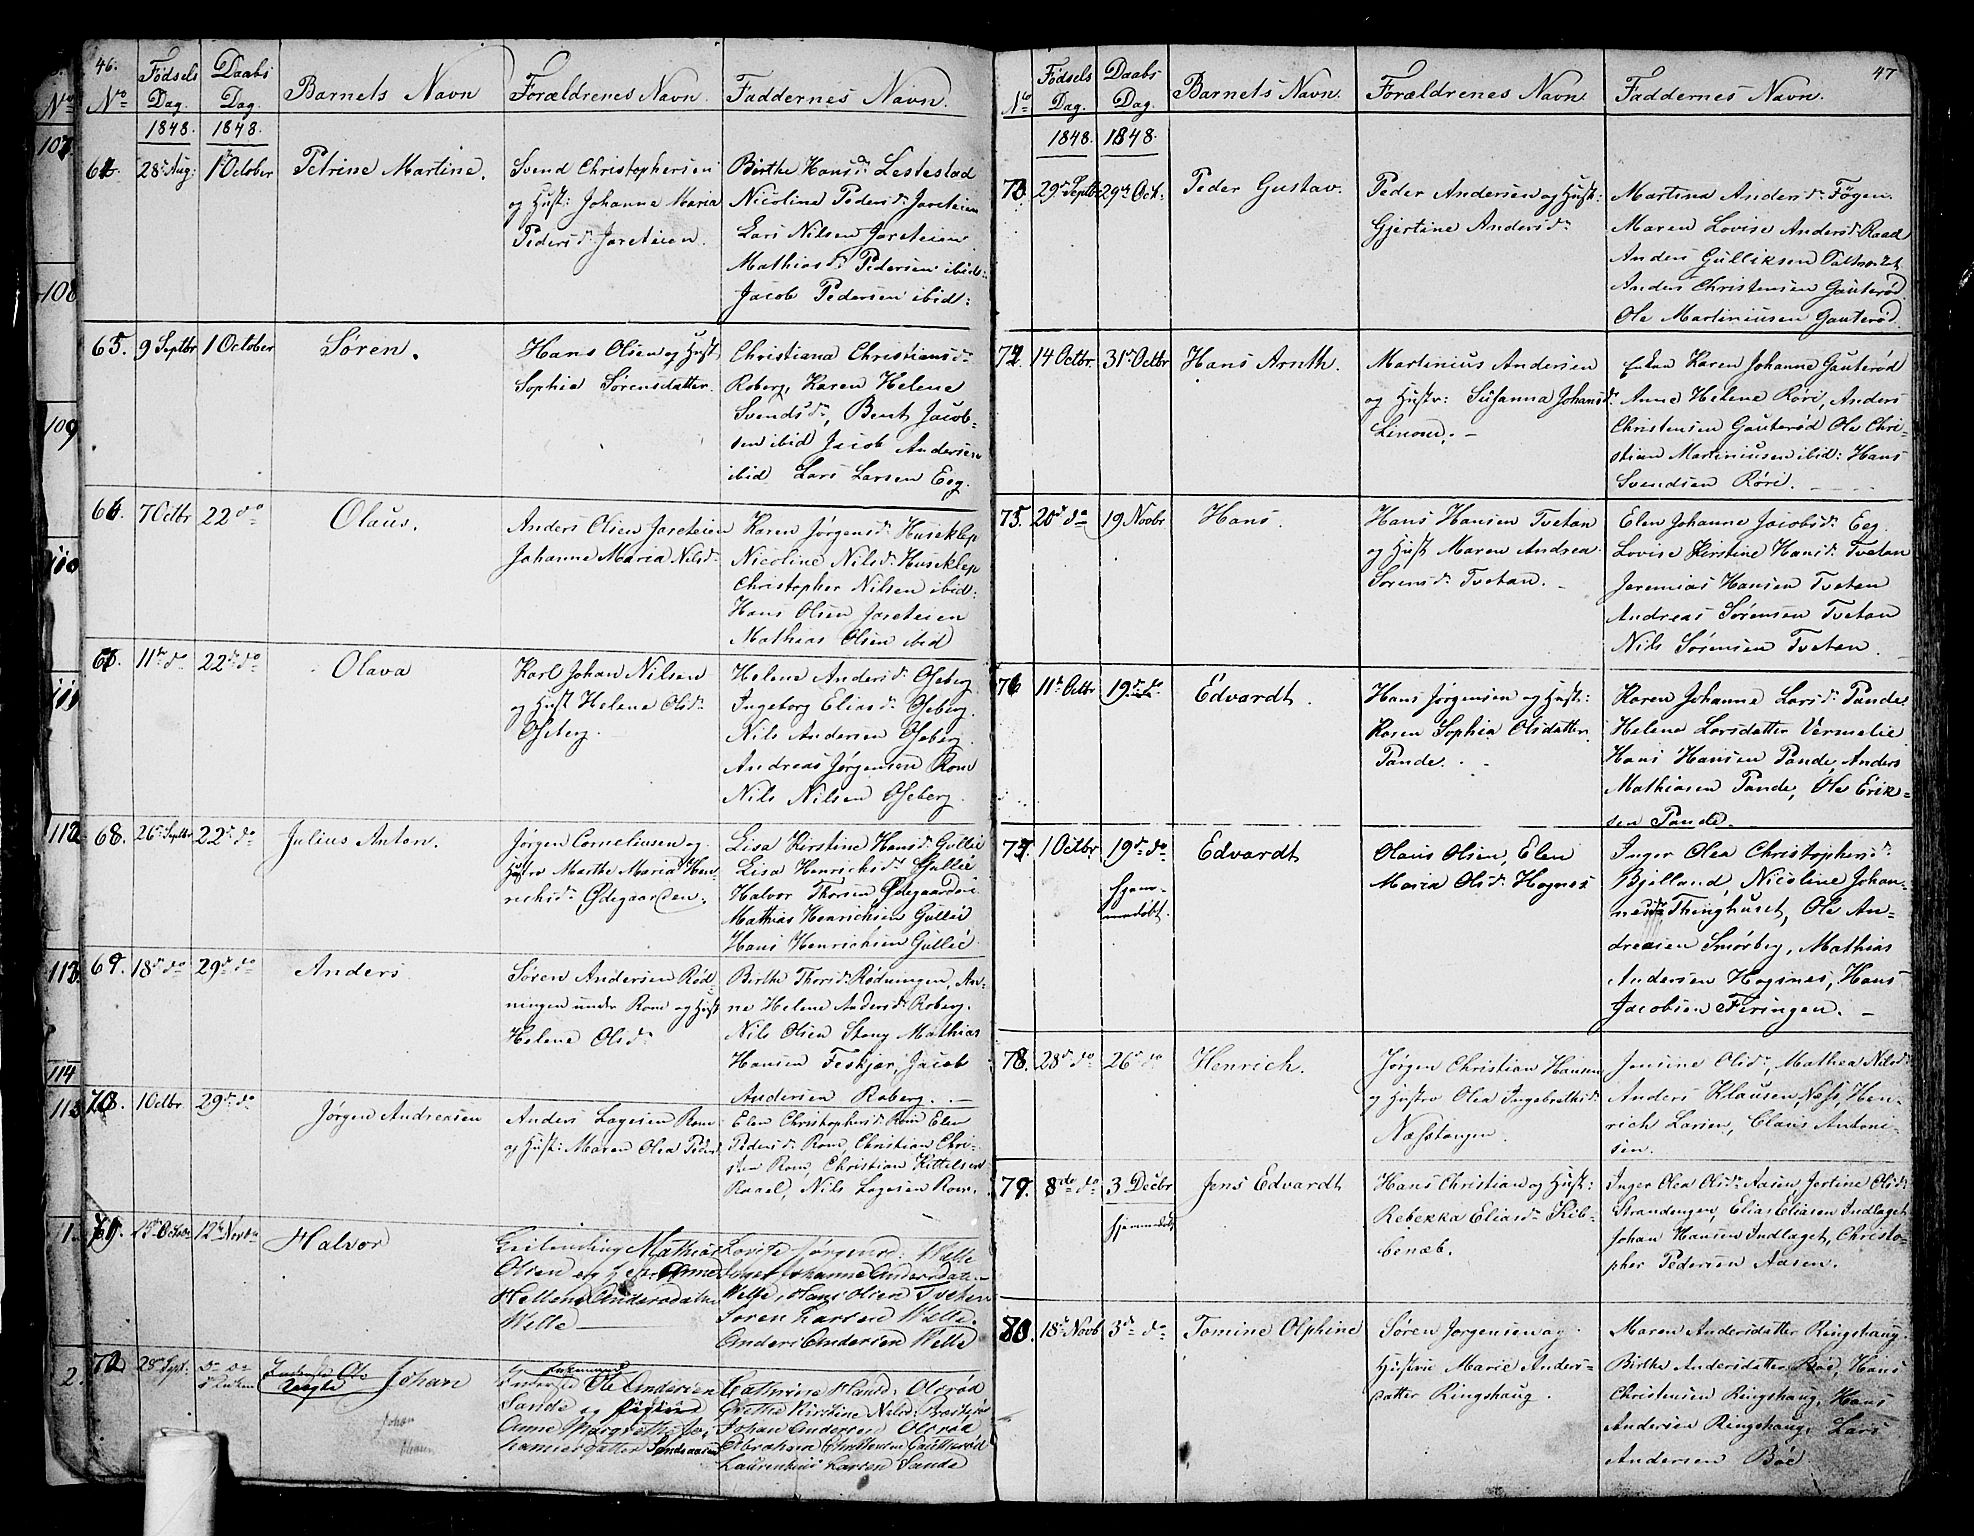 46.
No
Fødsels
Dag.
Daabs
Dag.
Barnets Navn
Forældrenes Navn.
Faddernes Navn.
1848.
1848.
107
108
109
110
111
112
113
114
1.
2
64
28de Aug:
1 October
Petrine Martine.
Svend Christophersen
og Hust: Johanne Maria
Pedersd: Jareteien.
Birthe Hansd: Lestestad
Nicoline Pedersd: Jareteien
Lars Nilsen Jareteien
Mathias Pedersen ibid:
Jacob Pedersen ibid:
65.
9 Septbr
1 October
Søren.
Hans Olsen og Hust
Sophie Sørensdatter.
Christiana Christiansd:
Roberg, Karen Helene
Svendsd:, Bent Jacob-
sen ibid Jacob Andersen
ibid Lars Larsen Eeg.
66.
7 Octbr
22 do
Olaus.
Anders Olsen Jareteien
Johanne Maria Nilsd:
Karen Jørgensd: Huseklep
Nicoline Nilsd: Huseklep
Christopher Nilsen ibid:
Hans Olsen Jareteien
Mathias Olsen ibid
11te do
22de do
Olava
Karl Johan Nilsen
og Hust Helene Olsd:
Oseberg.
Helene Andersd: Oseberg
Ingeborg Eliasd: Oseberg.
Nils Andersen Oseberg.
Andreas Jørgensen Rom
Nils Nilsen Oseberg.
68.
26de Septbr
22de do
Julius Anton.
Jørgen Corneliusen og
Hustro Marthe Maria Hen-
richsd: Ødegaarden.
Lisa Kirstine Hansd: Gullie
Lisa Henrichsd: Gullie
Halvor Thorsen Ødegaarden
Mathias Henrichsen Gullie
Hans Henrichsen Gullie
69.
18de do
29de do
Anders
Søren Andersen Rød-
ningen under Rom og Hust
Helene Olsd:
Birthe Thorsd: Rødningen, An-
ne Helene Andersd: Roberg.
Nils Olsen Stang Mathias
Hansen Feskjær, Jacob
Andersen Roberg.
70.
1 Octbr.
29de do
Jørgen Andreasen
Anders Lagesen Rom
og Hust: Maren Olea Peders
Elen Christophersd: Rom Elen
Pedersd: Rom, Christian Chri-
sten Rom, Christian Kittelsen
Raael, Nils Lagesen Rom.
Halvor
Mathias
Olsen og Anne
Hellene Andersdatter
Welle
Jørgensd: Welle
Johanne Andersdatter
Welle, Hans Olsen Tveten
Søren Larsen Welle.
Anders Andersen Welle
72
28de Sept.
Johan
Ole Andersen
Sande og
Anne Margrethe Jo-
hannesdatter
Cathrine Hansd: Olsrød
Johan Andersen Olsrød
Laurentius Larsen Sande
Johan
47
No
Fødsels
Dag.
Daabs
Dag.
Barnets Navn.
Forældrenes Navn
Faddernes Navn.
1848.
1848.
73
29de Septbr
29de Oct.
Peder Gustav.
Peder Andersen og Hust:
Gjertine Andersd:
Martina Andersd: Føgen
Maren Lovise Andersd: Raad
Anders Gulliksen
Anders Christensen Gauterød.
Ole Martiniusen Gauterød
14 Octbr.
31de Octbr
Hans Arnth.
Martinius Andersen
og Hustr: Susanna Johansd:
Linom.
Enken Karen Johanne Gauterød
Anne Helene Røri, Anders
Christensen Gauterød Ole Chri-
stian Martiniusen ibid: Hans
Svendsen Røri.
75.
20de do
19 Novbr
Hans.
Hans Hansen Tvetan
og Hust Maren Andrea
Sørensd: Tvetan.
Elen Johanne Jacobsd: Eeg.
Lovise Kirstine Hansd: Tvetan
Jeremias Hansen Tvetan
Andreas Sørensen Tvetan
Nils Sørensen Tvetan.
76
11te Octbr
19de do
Edvardt.
Hans Jørgensen og Hust:
Karen Sophia Olsdatter
Pande.
Karen Johanne Larsd: Pande
Helene Larsdatter Vermelie
Hans Hansen Pande, Anders
Mathiasen Pande, Ole Erik-
sen Pande.
77.
1 Octbr
19de do
hjem-
medøbt.
Edvardt
Olaus Olsen, Elen
Maria Olsd: Hognes
Inger Olea Christophersd:
Bjelland, Nicoline Johan-
nesd: Thinghuset, Ole An-
dreasen Smørberg, Mathias
Andersen Hogsnes, Hans
Jacobsen Feringen.
78.
28de do
26de do
Henrich.
Jørgen Christian Hansen
og Hustro Olea Ingebretsd:
Næsstangen.
Jensine Olsd:, Mathea Nilsd:
Anders Klausen Næss, Hen-
rich Larsen, Claus Antoni-
sen.
79.
8de do
3 Decbr
hjemmedøbt
Jens Edvardt
Hans Christian og Hust:
Rebekka Eliasd: Kib-
benæb.
Inger Olea Olsd: Aasen Jertine Olsd:
Strandengen, Elias Eliasen Indlaget
Johan Hansen Indlaget, Christo-
pher Pedersen Aasen.
80.
18de Novb
3de do
Tomine Olphine
Søren Jørgensen og
Hustrue Marie Anders-
datter Ringshaug.
Maren Andersdatter Ringshaug.
Birthe Andersdatter Bøe, Hans
Christensen Ringshaug, Hans
Andersen Ringshaug, Lars
Andersen Bøe.